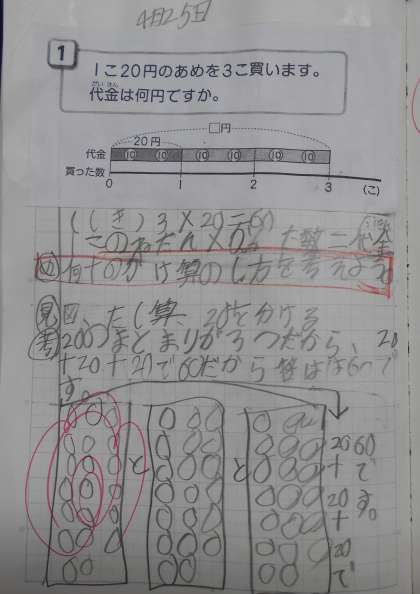 4月25日
1
1こ20円のあめを3こ買います。
だいきん
代金は何円ですか。
□円
20円
代金 10 10 10 10 10 10
買った数
0 1 2 3 (こ)
(しき) 3×20=60
1このねだん×買った数=代金
め 何十のかけ算のしかたを考えよう
見 図、たし算、20をわける
考 20のまとまりが3つだから、20
+20+20で60だから答は60
です。
と と
20 60
+ で
20 す。
+
20
で